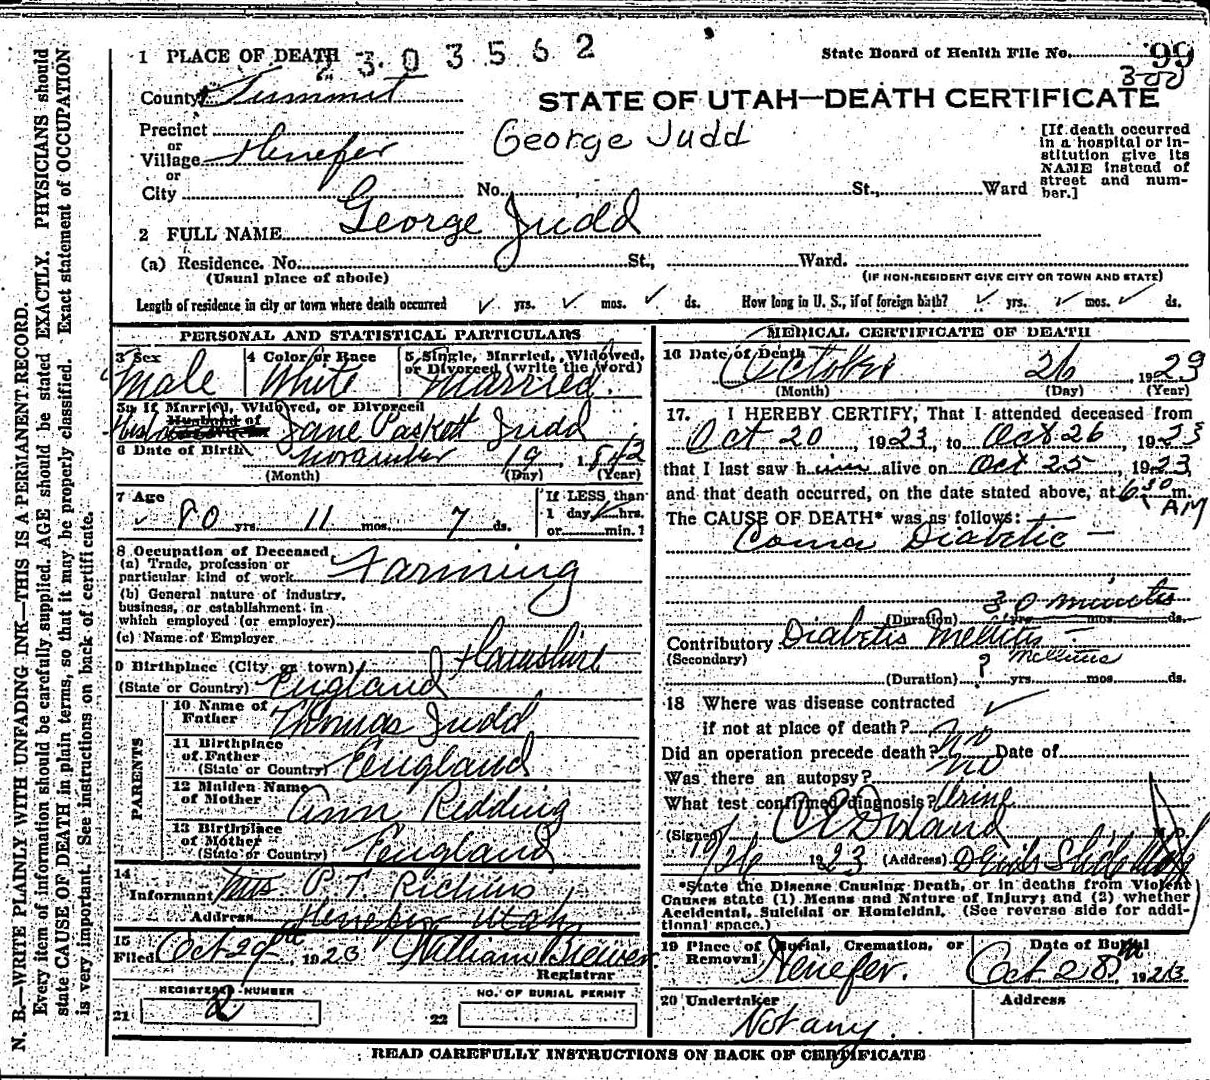 1 PLACE OF DEATH
2303562
State Board of Health File No. 99
300
County Summit
STATE OF UTAH—DEATH CERTIFICATE
Precinct
or
Village Henefer
or
City
George Judd
No. St., Ward
[If death occurred
in a hospital or in-
stitution give its
NAME instead of
street and num-
ber.]
2 FULL NAME George Judd
(a) Residence. No. St., Ward.
(Usual place of abode)
(IF NON-RESIDENT GIVE CITY OR TOWN AND STATE)
Length of residence in city or town where death occurred ✓ yrs. ✓ mos. ✓ ds.
How long in U. S., if of foreign birth? ✓ yrs. ✓ mos. ✓ ds.
PERSONAL AND STATISTICAL PARTICULARS
3 Sex
Male
4 Color or Race
White
5 Single, Married, Widowed,
or Divorced (write the word)
Married.
5a If Married, Widowed, or Divorced
Husband of
Jane Paskett Judd
6 Date of Birth November 19, 1842
(Month) (Day) (Year)
7 Age
✓ 80 yrs. 11 mos. 7 ds.
If LESS than
1 day, hrs.
or min.?
8 Occupation of Deceased
(a) Trade, profession or
particular kind of work Farming
(b) General nature of industry,
business, or establishment in
which employed (or employer)
(c) Name of Employer
9 Birthplace (City or town) Hampshire
(State or Country) England
PARENTS
10 Name of
Father Thomas Judd
11 Birthplace
of Father
(State or Country) England
12 Maiden Name
of Mother Ann Redding
13 Birthplace
of Mother
(State or Country) England
14
Informant Mrs. P. T. Richins
Address Henefer Utah
15
Filed Oct 29, 1923 William Brewer
Registrar
REGISTERED NUMBER
21 2
NO. OF BURIAL PERMIT
22
MEDICAL CERTIFICATE OF DEATH
16 Date of Death
October 26, 1923
(Month) (Day) (Year)
17. I HEREBY CERTIFY, That I attended deceased from
Oct 20 1923, to Oct 26, 1923
that I last saw him alive on Oct 25, 1923,
and that death occurred, on the date stated above, at 6 30 m.
AM
The CAUSE OF DEATH* was as follows:
Coma Diabetic —
30 minutes
(Duration) yrs. mos. ds.
Contributory Diabetis Mellitis —
(Secondary) Mellitus
(Duration) ? yrs. mos. ds.
18 Where was disease contracted
if not at place of death? ✓
Did an operation precede death? no Date of
Was there an autopsy? no
What test confirmed diagnosis? Urine
(Signed)
10/26 1923 (Address) Devils Slide Utah
*State the Disease Causing Death, or in deaths from Violent
Causes state (1) Means and Nature of Injury; and (2) whether
Accidental, Suicidal or Homicidal. (See reverse side for addi-
tional space.)
19 Place of Burial, Cremation, or
Removal
Henefer.
Date of Burial
Oct 28, 1923
20 Undertaker
Not any.
Address
READ CAREFULLY INSTRUCTIONS ON BACK OF CERTIFICATE
N. B.—WRITE PLAINLY WITH UNFADING INK—THIS IS A PERMANENT RECORD.
Every item of information should be carefully supplied. AGE should be stated EXACTLY. PHYSICIANS should
state CAUSE OF DEATH in plain terms, so that it may be properly classified. Exact statement of OCCUPATION
is very important. See instructions on back of certificate.